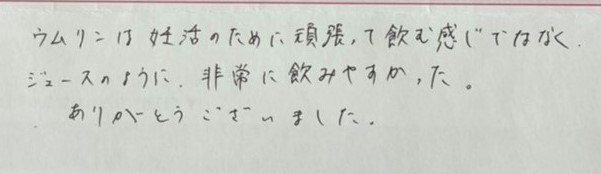 ウムリンは妊活のために頑張って飲む感じではなく、
ジュースのように、非常に飲みやすかった。
ありがとうございました。